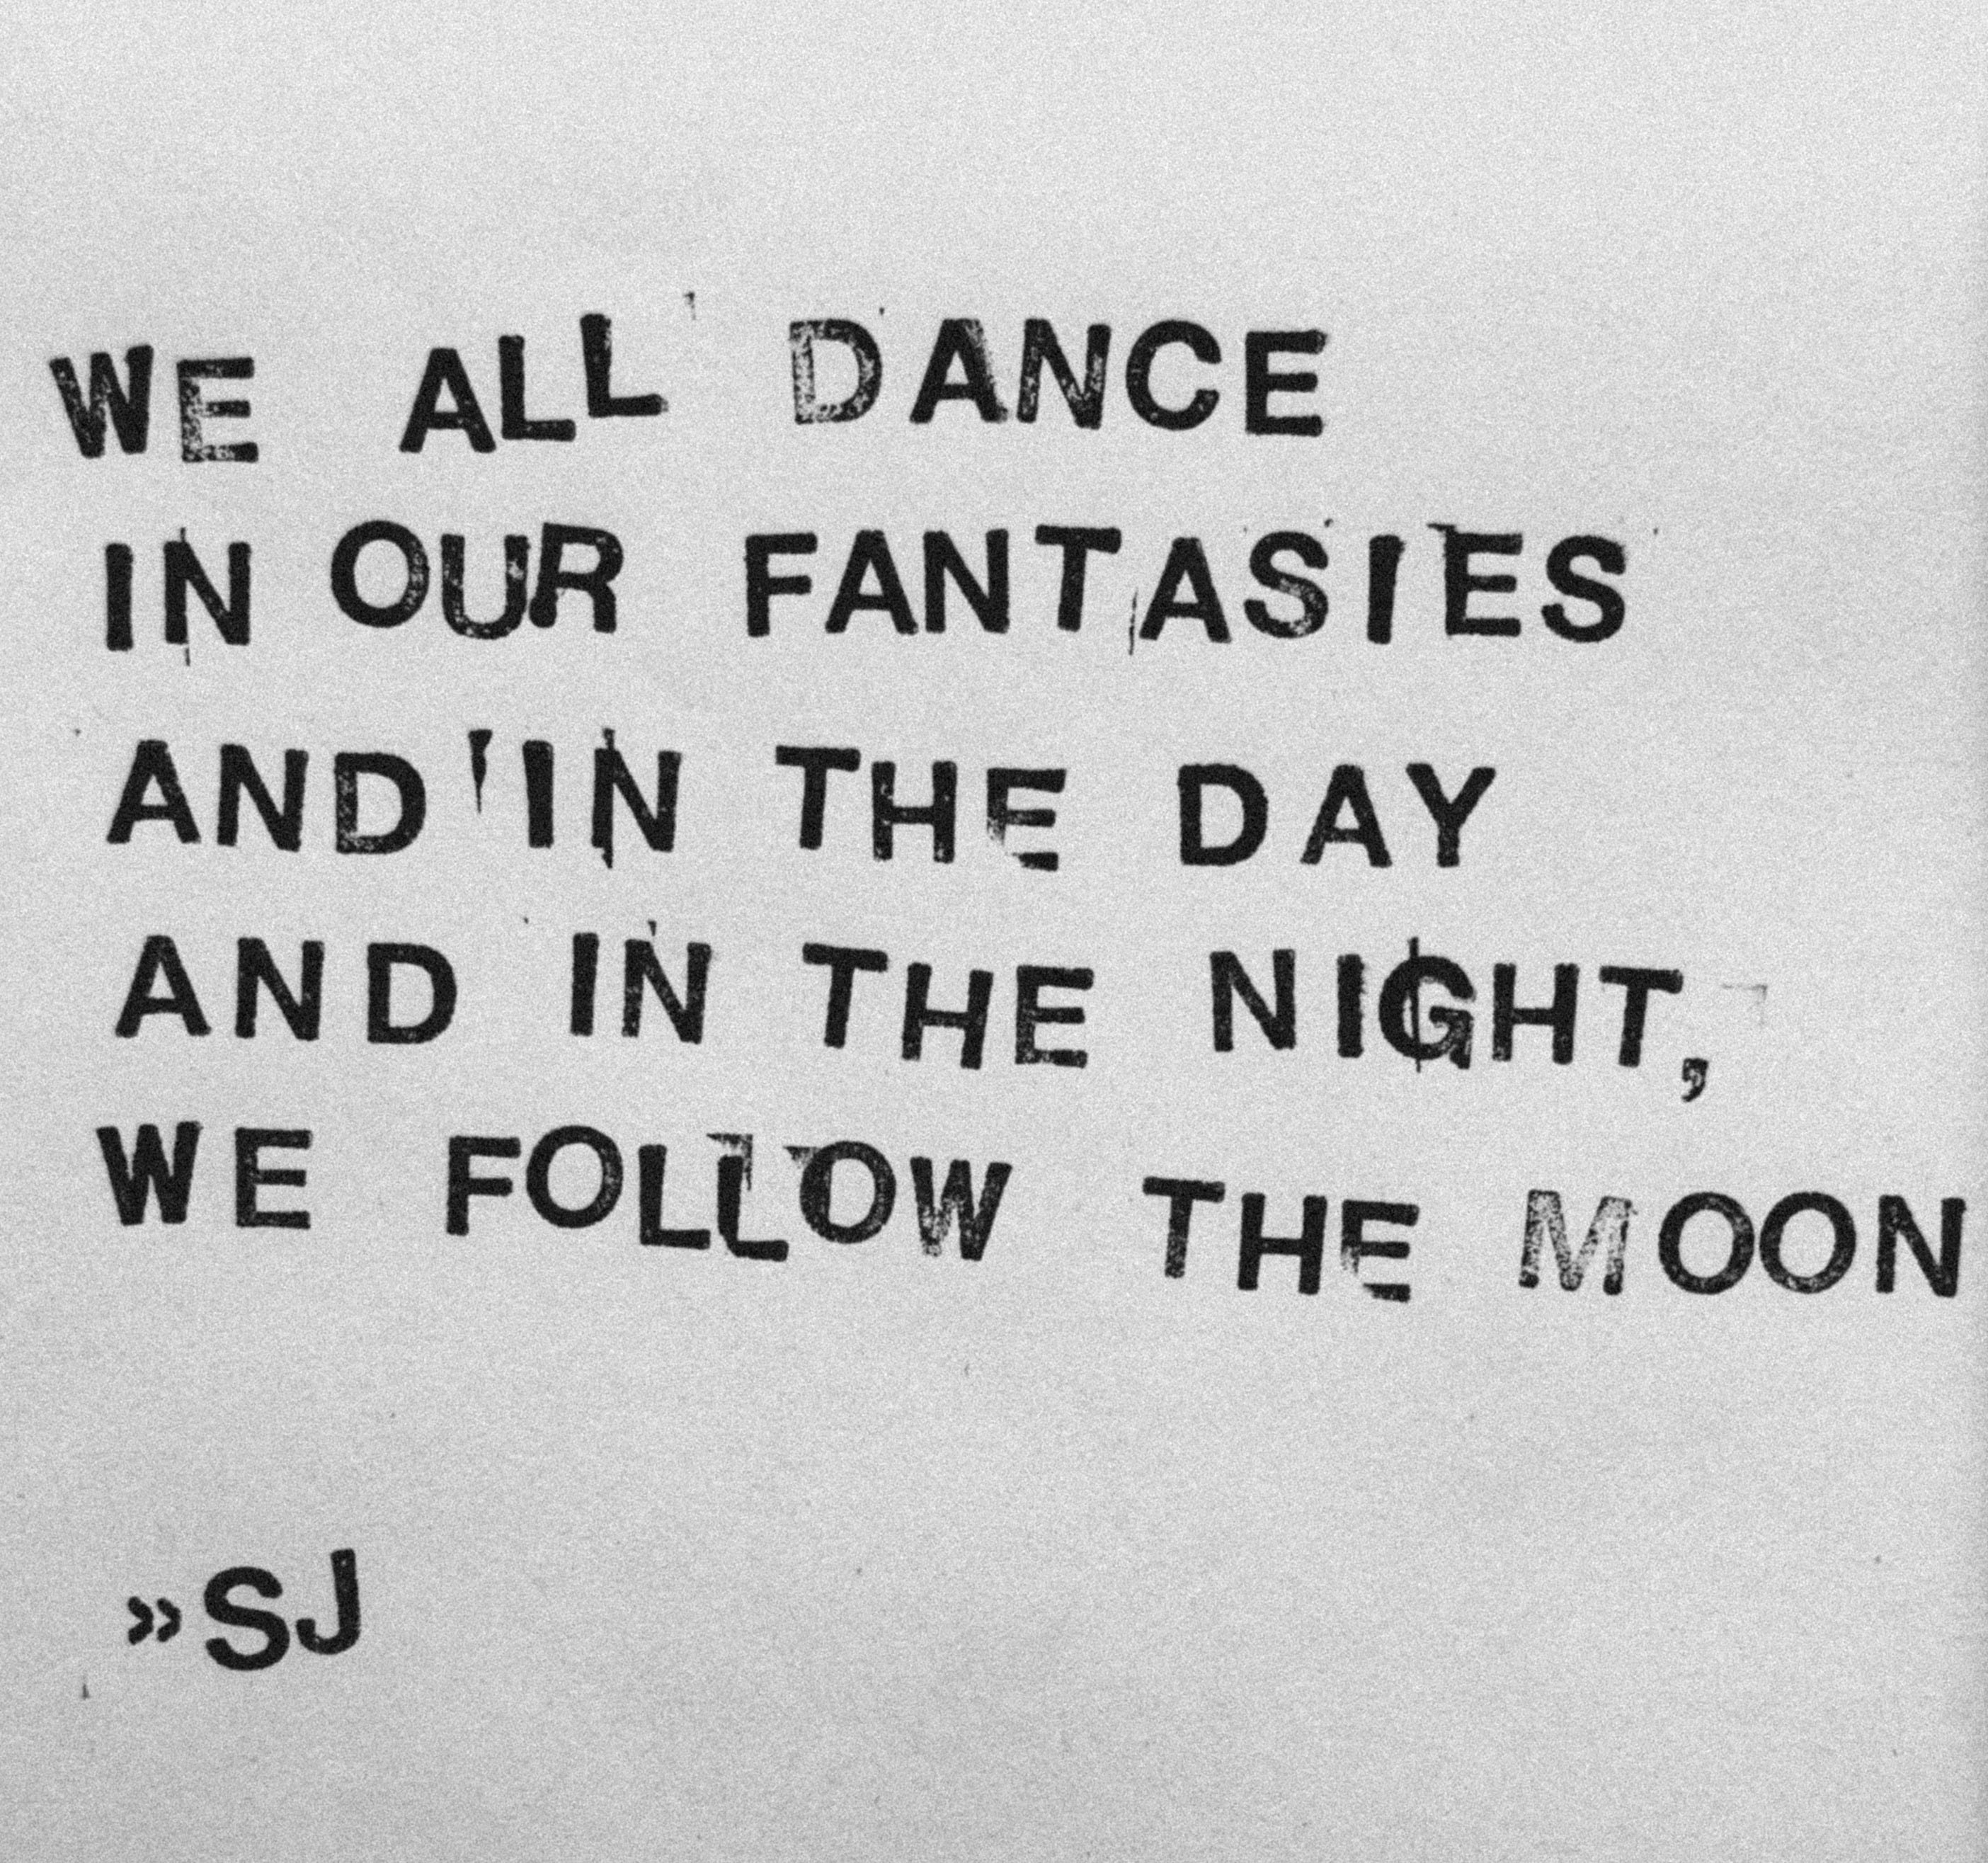 WE ALL DANCE
IN OUR FANTASIES
AND IN THE DAY
AND IN THE NIGHT,
WE FOLLOW THE MOON
»SJ